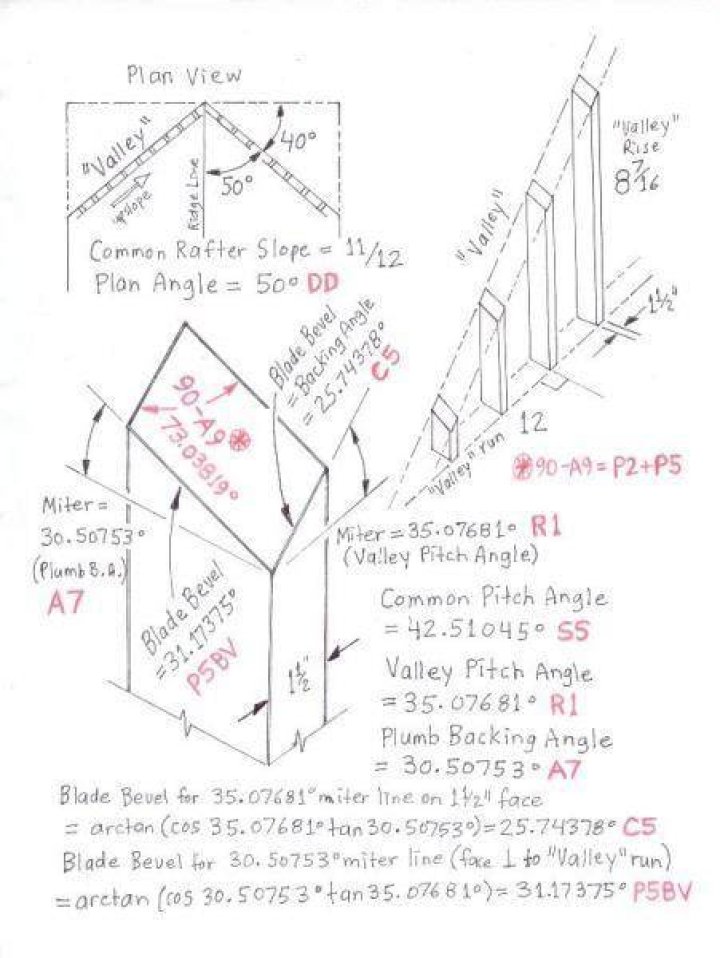 Plan View
"Valley"
upslope
Ridge Line
40°
50°
Common Rafter Slope = 11/12
Plan Angle = 50° DD
"Valley"
"Valley"
Rise
8 7/16
1 1/2"
12
"Valley" run
⊛90-A9 = P2+P5
Blade Bevel
= Backing Angle
= 25.74378°
C5
90-A9⊛
73.03819°
Miter =
30.50753°
(Plumb B.A.)
A7
Blade Bevel
=31.17375°
P5BV
1 1/2"
Miter = 35.07681° R1
(Valley Pitch Angle)
Common Pitch Angle
= 42.51045° S5
Valley Pitch Angle
= 35.07681° R1
Plumb Backing Angle
= 30.50753° A7
Blade Bevel for 35.07681° miter line on 1 1/2" face
= arctan (cos 35.07681° tan 30.50753°) = 25.74378° C5
Blade Bevel for 30.50753° miter line (face ⊥ to "Valley" run)
= arctan (cos 30.50753° tan 35.07681°) = 31.17375° P5BV